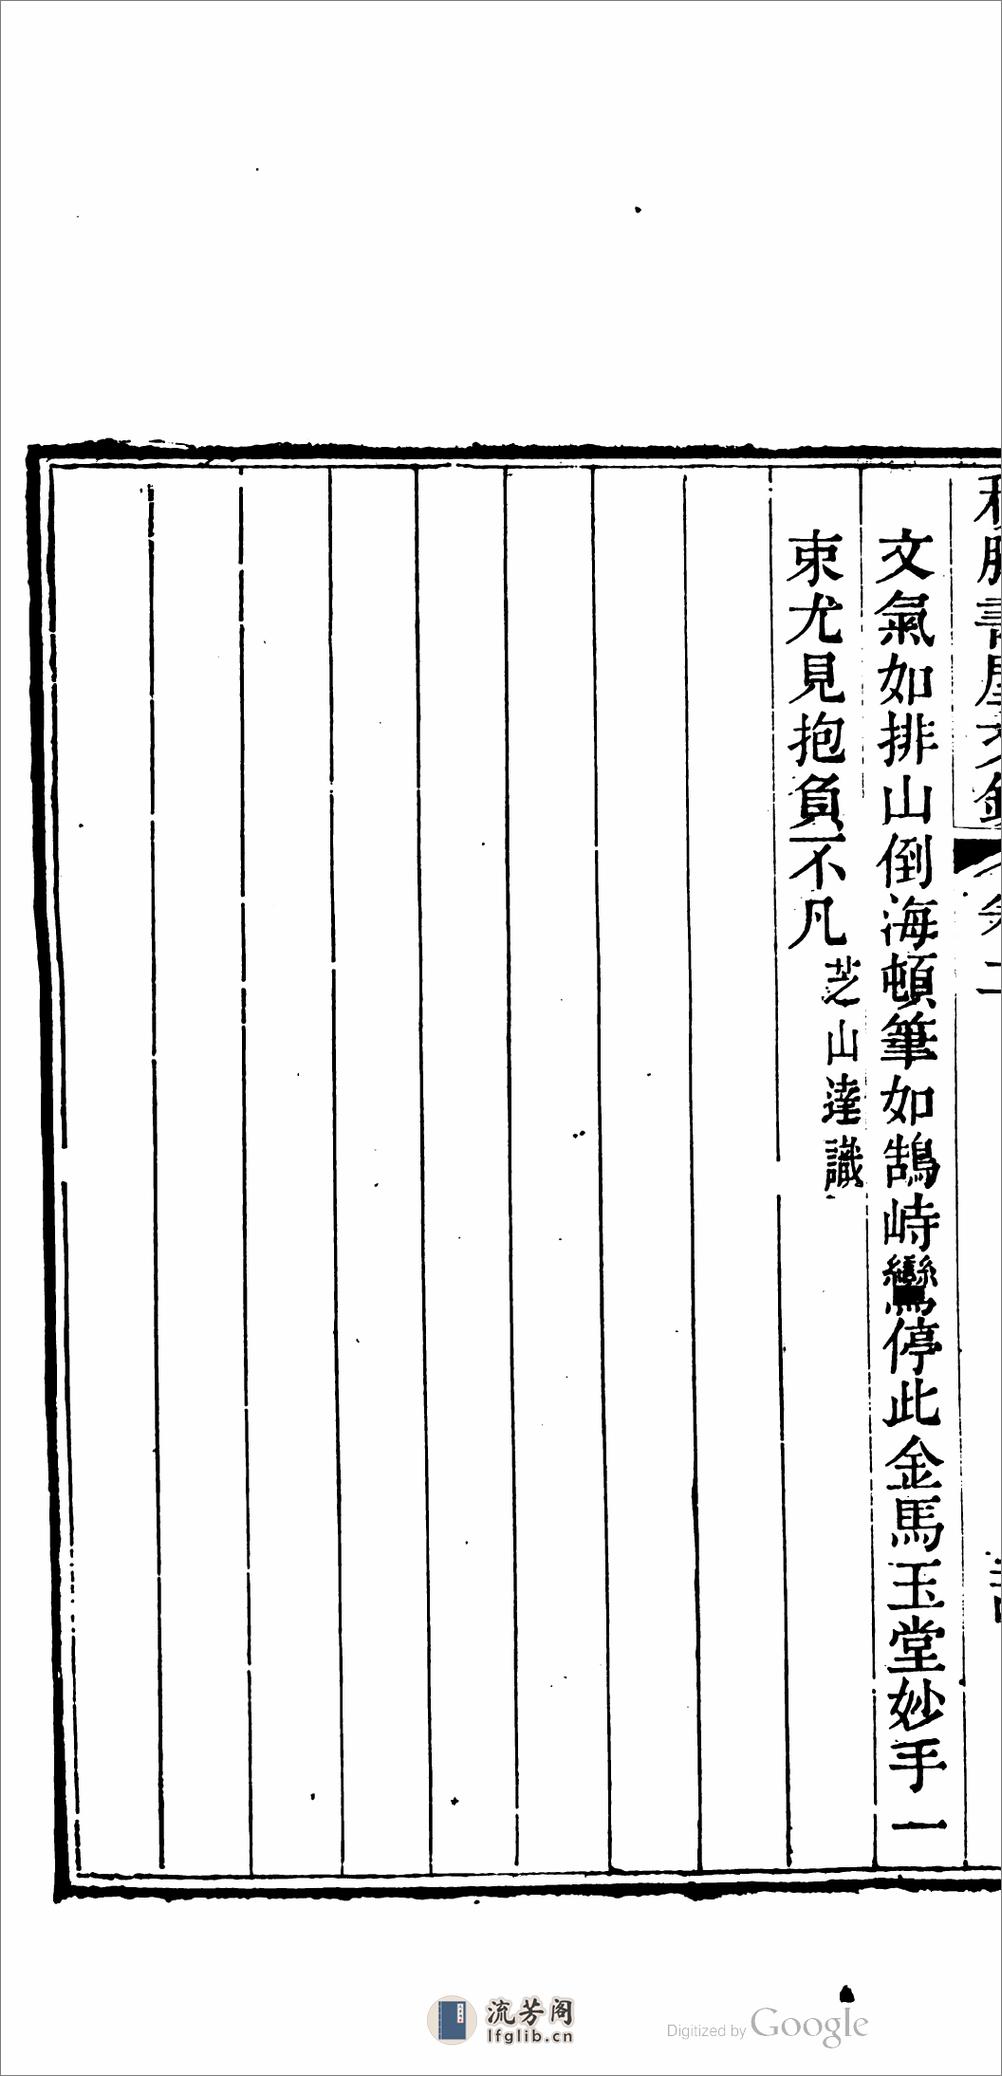 文氣如排山倒海頓筆如鵠峙鸞停此金馬玉堂妙手一
束尤見抱負不凡芝山達識
流芳阁
lfglib.cn
Digitized by Google